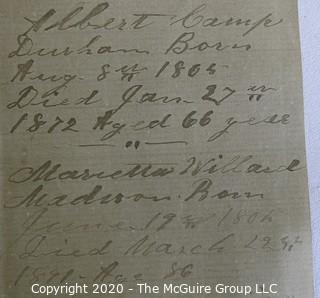 Albert Camp
Durham Born
Aug. 8th 1805
Died Jan. 27th
1872 Aged 66 year
"
Marietta Willard
Madison Born
June 19th 1805
Died March 22nd
1891 Age 86
Copyright © 2020 - The McGuire Group LLC